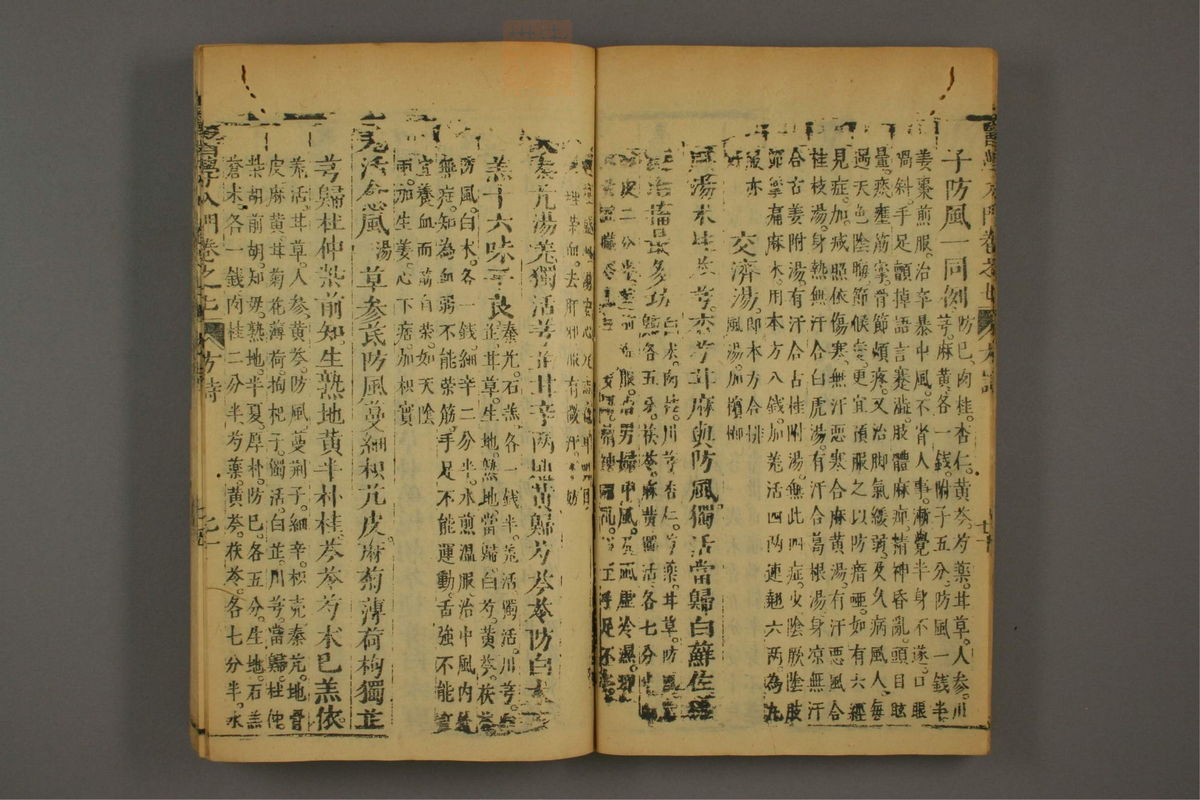 子防風一同例防巳肉桂杏仁黃芩芍藥甘草人參川
芎麻黃各一錢附子五分防風一錢半
姜棗煎服治卒暴中風不省人事漸覺半身不遂口眼
喎斜手足顫掉語言蹇澁肢體麻痹精神昏亂頭目眩
暈痰壅筋攣骨節煩疼又治脚氣緩弱及久病風人每
遇天色陰晦節候變更宜預服之以防瘖啞如有六經
見症加减照依傷寒無汗惡寒合麻黃湯有汗惡風合
桂枝湯身熱無汗合白虎湯有汗合葛根湯身凉無汗
合古姜附湯有汗合古桂附湯無此四症少陰厥陰肢
節攣痛麻木用本方八錢加羗活四兩連翹六兩為九
服亦
好 交濟湯即本方合排
風湯加檳榔
風湯术桂芩芎杏芍甘麻與防風獨活當歸白蘚佐
白术肉桂川芎杏仁芍藥甘草防風
歸各五分茯苓麻黃獨活各七分
二分姜煎服治男婦中風風虛冷濕邪
去肝邪服有微汗不妨
大秦艽湯羗獨活芎芷甘辛兩地黃歸芍芩苓防白术
羔十六味平良秦艽石羔各一錢半羗活獨活川芎
芷甘草生地熟地當歸白芍黃芩茯苓
防風白术各一錢細辛二分半水煎溫服治中風內外
無症知為血弱不能榮筋手足不能運動舌強不能言
宜養血而筋自榮如天陰
雨加生姜心下痞加枳實
羗活愈風湯草參芪防風蔓細枳艽皮麻菊薄荷枸獨芷
芎歸杜仲柴前知生熟地黃半朴桂芩苓芍术巳羔依
羗活甘草人參黃芪防風蔓荆子細辛枳壳秦艽地骨
皮麻黃甘菊花薄荷枸杞子獨活白芷川芎當歸杜仲
柴胡前胡知母熟地半夏厚朴防巳各五分生地石羔
蒼术各一錢肉桂二分半芍藥黃芩茯苓各七分半水
入門卷之七 方詩